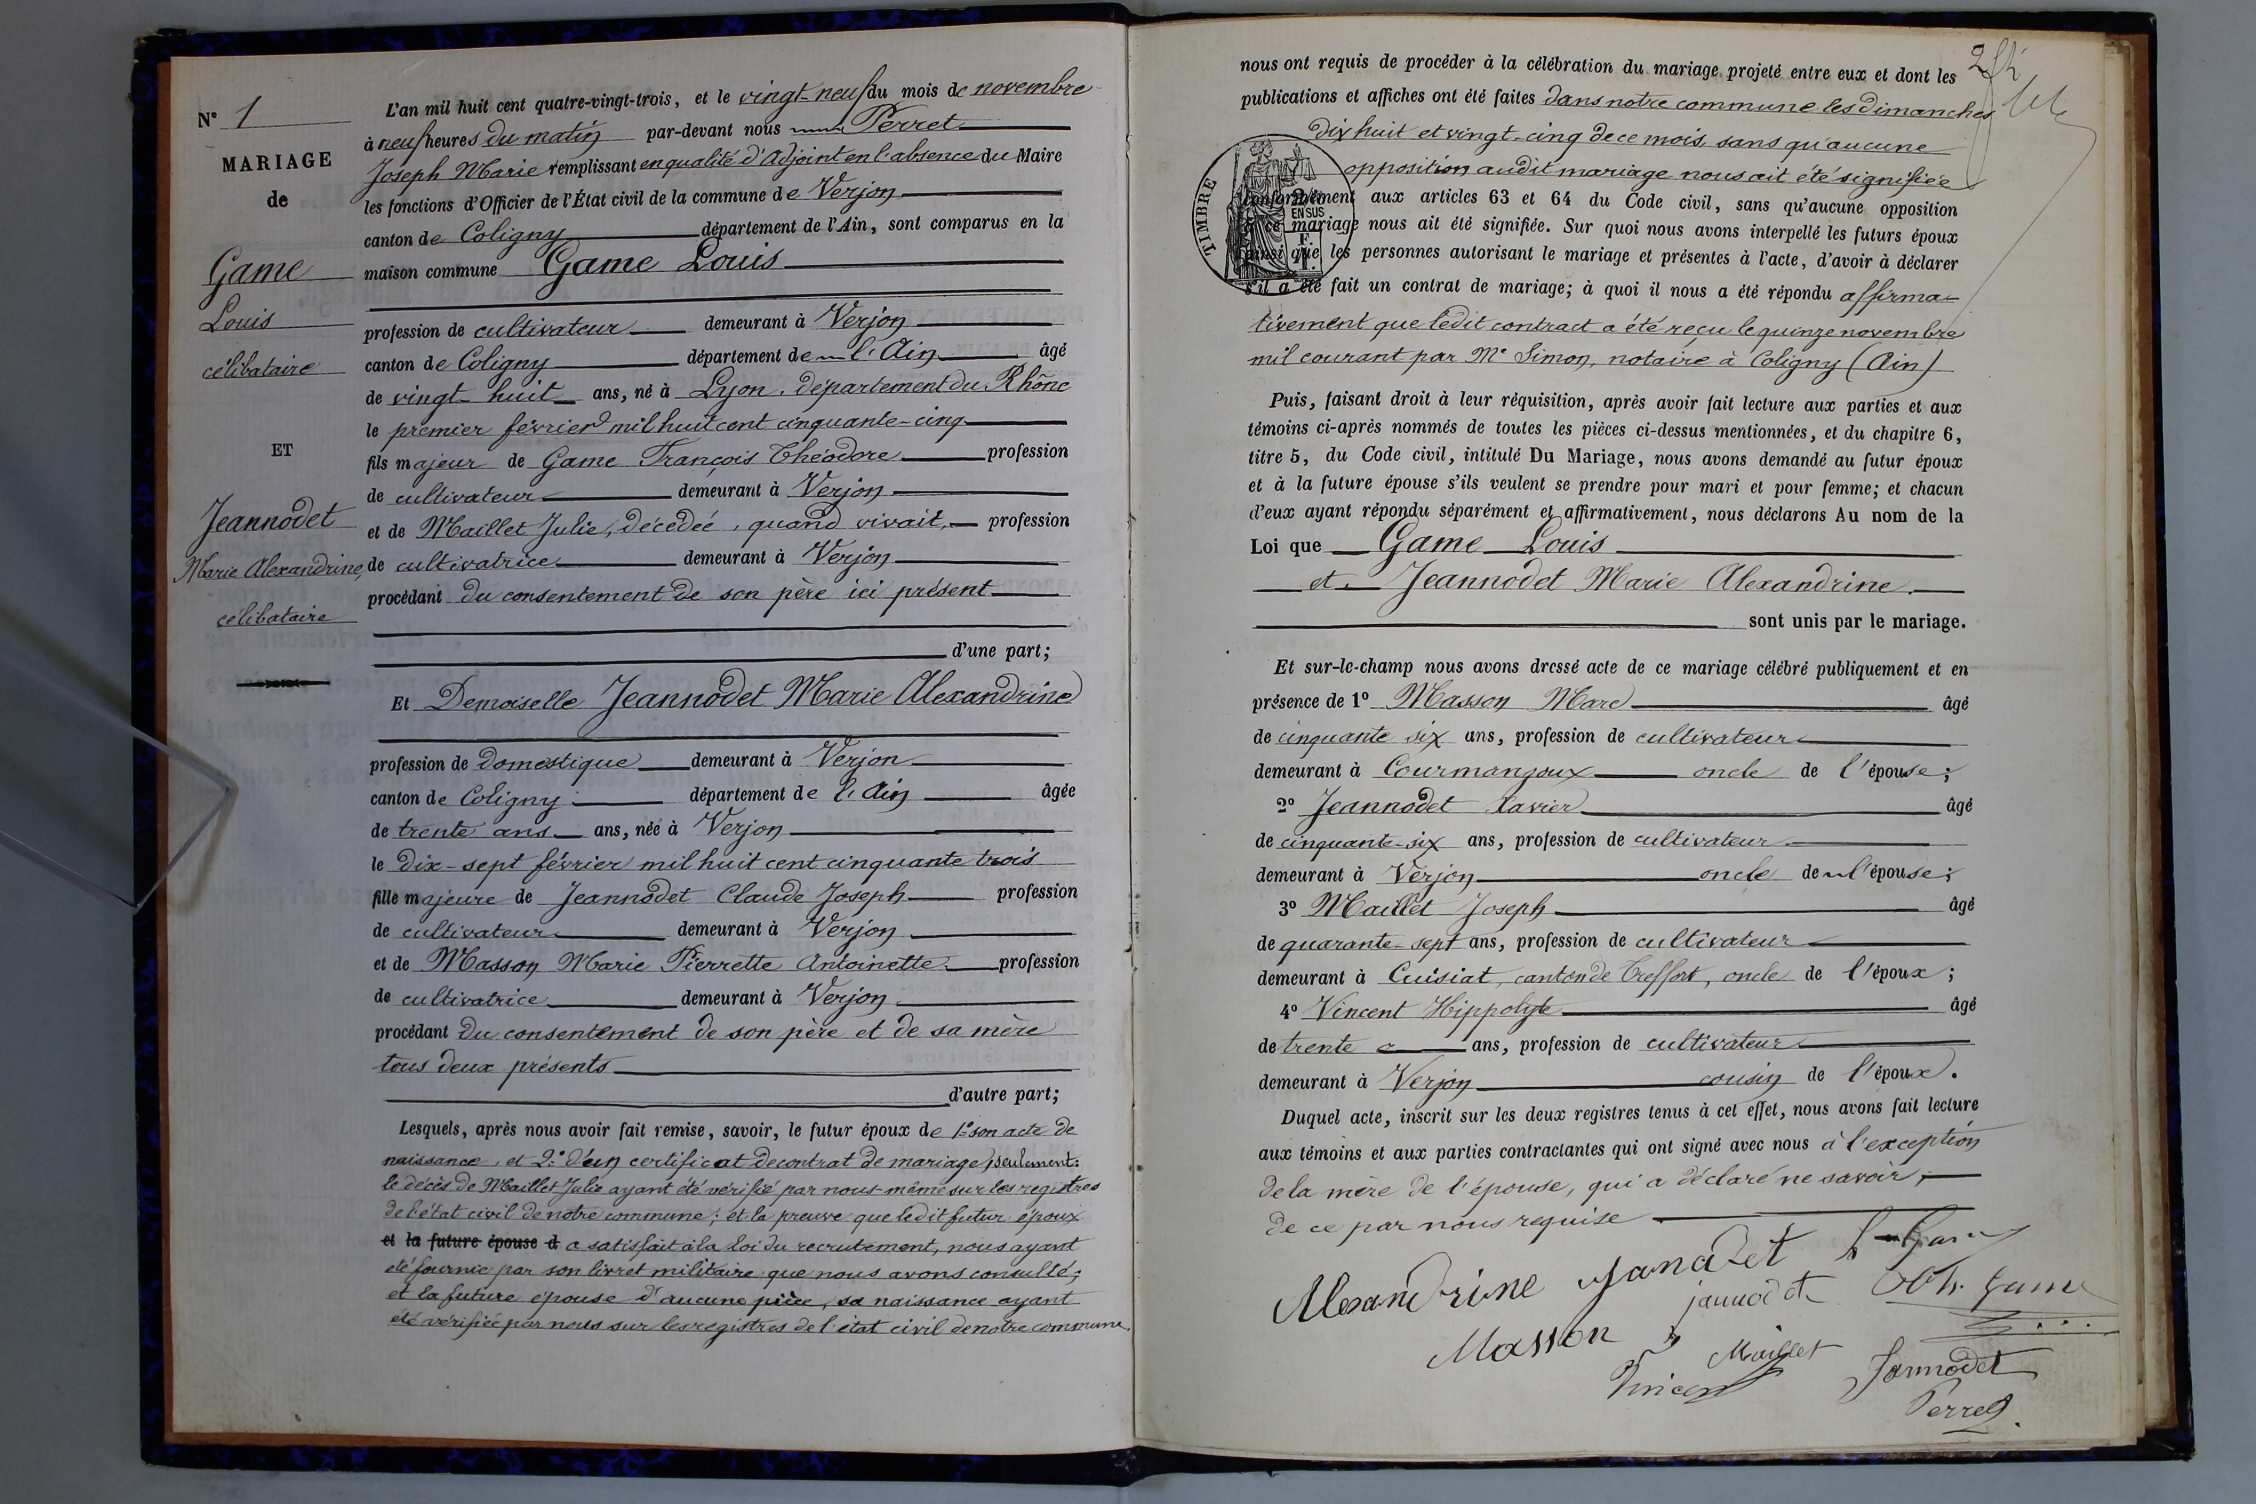 N° 1
MARIAGE
de
Game
Louis
célibataire
ET
Jeannodet
Marie Alexandrine,
célibataire
L'an mil huit cent quatre-vingt-trois, et le vingt-neuf du mois de novembre
à neuf heures du matin par-devant nous Perret
Joseph Marie remplissant en qualité d'Adjoint en l'absence du Maire
les fonctions d'Officier de l'État civil de la commune de Verjon
canton de Coligny département de l'Ain, sont comparus en la
maison commune Game Louis
profession de cultivateur demeurant à Verjon
canton de Coligny département de l'Ain âgé
de vingt-huit ans, né à Lyon, département du Rhône
le premier février mil huit cent cinquante-cinq
fils majeur de Game François Théodore profession
de cultivateur demeurant à Verjon
et de Maillet Julie, décédeé, quand vivait, profession
de cultivatrice demeurant à Verjon
procédant du consentement de son père ici présent
d'une part;
Et Demoiselle Jeannodet Marie Alexandrine
profession de domestique demeurant à Verjon
canton de Coligny département de l'Ain âgée
de trente ans ans, née à Verjon
le dix-sept février mil huit cent cinquante trois
fille majeure de Jeannodet Claude Joseph profession
de cultivateur demeurant à Verjon
et de Masson Marie Pierrette Antoinette profession
de cultivatrice demeurant à Verjon
procédant du consentement de son père et de sa mère
tous deux présents
d'autre part;
Lesquels, après nous avoir fait remise, savoir, le futur époux de 1° son acte de
naissance, et 2° d'un certificat de contrat de mariage seulement:
le décès de Maillet Julie ayant été vérifié par nous-même sur les registres
de l'état civil de notre commune; et la preuve que ledit futur époux
et la future épouse d a satisfait à la loi du recrutement, nous ayant
été fournie par son livret militaire que nous avons consulté;
et la future épouse d'aucune pièce, sa naissance ayant
été vérifiée par nous sur les registres de l'état civil de notre commune.
nous ont requis de procéder à la célébration du mariage projeté entre eux et dont les
publications et affiches ont été faites dans notre commune les dimanches
dix huit et vingt-cinq de ce mois, sans qu'aucune
opposition audit mariage nous ait été signifiée
TIMBRE
2/10 EN SUS
F.
1.
conformément aux articles 63 et 64 du Code civil, sans qu'aucune opposition
à ce mariage nous ait été signifiée. Sur quoi nous avons interpellé les futurs époux
ainsi que les personnes autorisant le mariage et présentes à l'acte, d'avoir à déclarer
s'il a été fait un contrat de mariage; à quoi il nous a été répondu affirma-
tivement que ledit contract a été reçu le quinze novembre
mil courant par Me Simon, notaire à Coligny (Ain)
Puis, faisant droit à leur réquisition, après avoir fait lecture aux parties et aux
témoins ci-après nommés de toutes les pièces ci-dessus mentionnées, et du chapitre 6,
titre 5, du Code civil, intitulé Du Mariage, nous avons demandé au futur époux
et à la future épouse s'ils veulent se prendre pour mari et pour femme; et chacun
d'eux ayant répondu séparément et affirmativement, nous déclarons Au nom de la
Loi que Game Louis
et Jeannodet Marie Alexandrine.
sont unis par le mariage.
Et sur-le-champ nous avons dressé acte de ce mariage célébré publiquement et en
présence de 1° Masson Marc âgé
de cinquante six ans, profession de cultivateur
demeurant à Courmangoux oncle de l'épouse;
2° Jeannodet Xavier âgé
de cinquante-six ans, profession de cultivateur
demeurant à Verjon oncle de l'épouse;
3° Maillet Joseph âgé
de quarante-sept ans, profession de cultivateur
demeurant à Cuisiat, canton de Treffort, oncle de l'époux;
4° Vincent Hippolyte âgé
de trente ans, profession de cultivateur
demeurant à Verjon cousin de l'époux.
Duquel acte, inscrit sur les deux registres tenus à cet effet, nous avons fait lecture
aux témoins et aux parties contractantes qui ont signé avec nous à l'exception
de la mère de l'épouse, qui a déclaré ne savoir;
de ce par nous requise
Alexandrine Janadet L Game
jannodet Game
Masson Maillet Jannodet
Vincent Perret